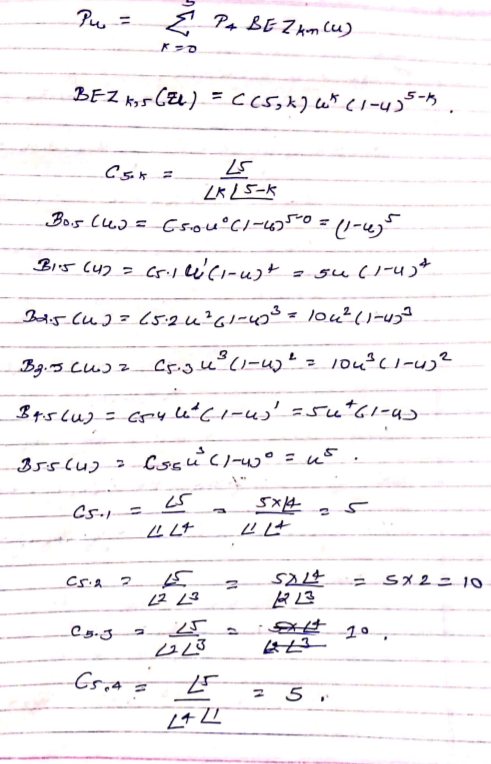 5
Pu = Σ P4 BEZ km(u)
K=0
BEZ k,5 (Zu) = C(5,k) u^k (1-u)^5-k .
C5.k = ∟5 / ∟K ∟5-K
B0.5 (u) = C5.0 u^0 (1-u)^5-0 = (1-u)^5
B1.5 (u) = C5.1 u^1 (1-u)^4 = 5u (1-u)^4
B2.5 (u) = C5.2 u^2 (1-u)^3 = 10u^2 (1-u)^3
B3.5 (u) = C5.3 u^3 (1-u)^2 = 10u^3 (1-u)^2
B4 5 (u) = C5 4 u^4 (1-u)^1 = 5u^4 (1-u)
B5 5 (u) = C5 5 u^5 (1-u)^0 = u^5 .
C5.1 = ∟5 / ∟1 ∟4 = 5×∟4 / ∟1 ∟4 = 5
C5.2 = ∟5 / ∟2 ∟3 = 5×∟4 / ∟2 ∟3 = 5×2 = 10
C5.3 = ∟5 / ∟2 ∟3 = 10 .
C5.4 = ∟5 / ∟4 ∟1 = 5 .